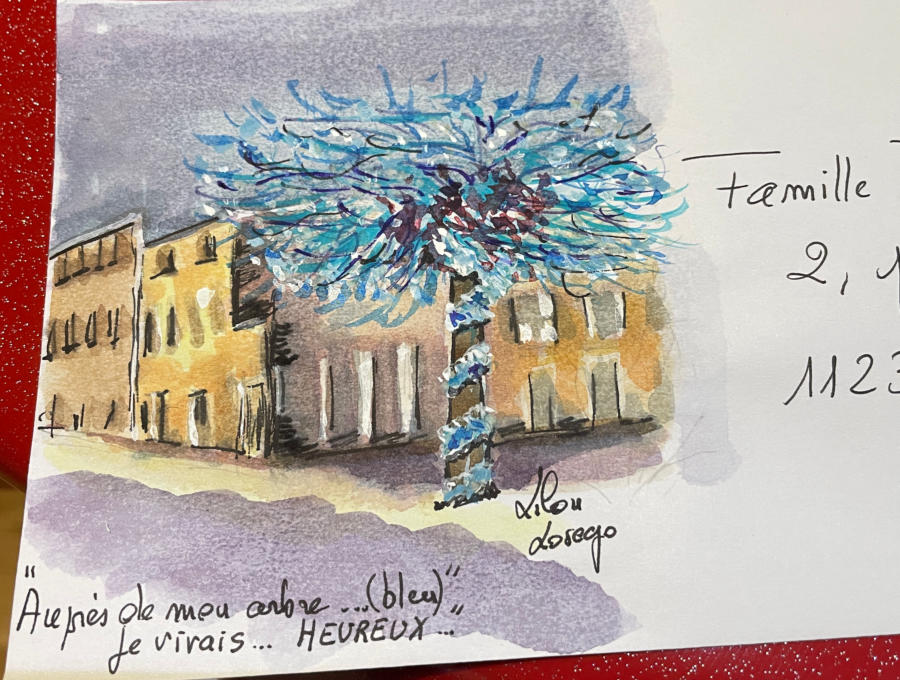 Famille
2, 1
1123
Lilou
Lorego
"Auprès de mon arbre ...(bleu)"
je vivais... HEUREUX..."